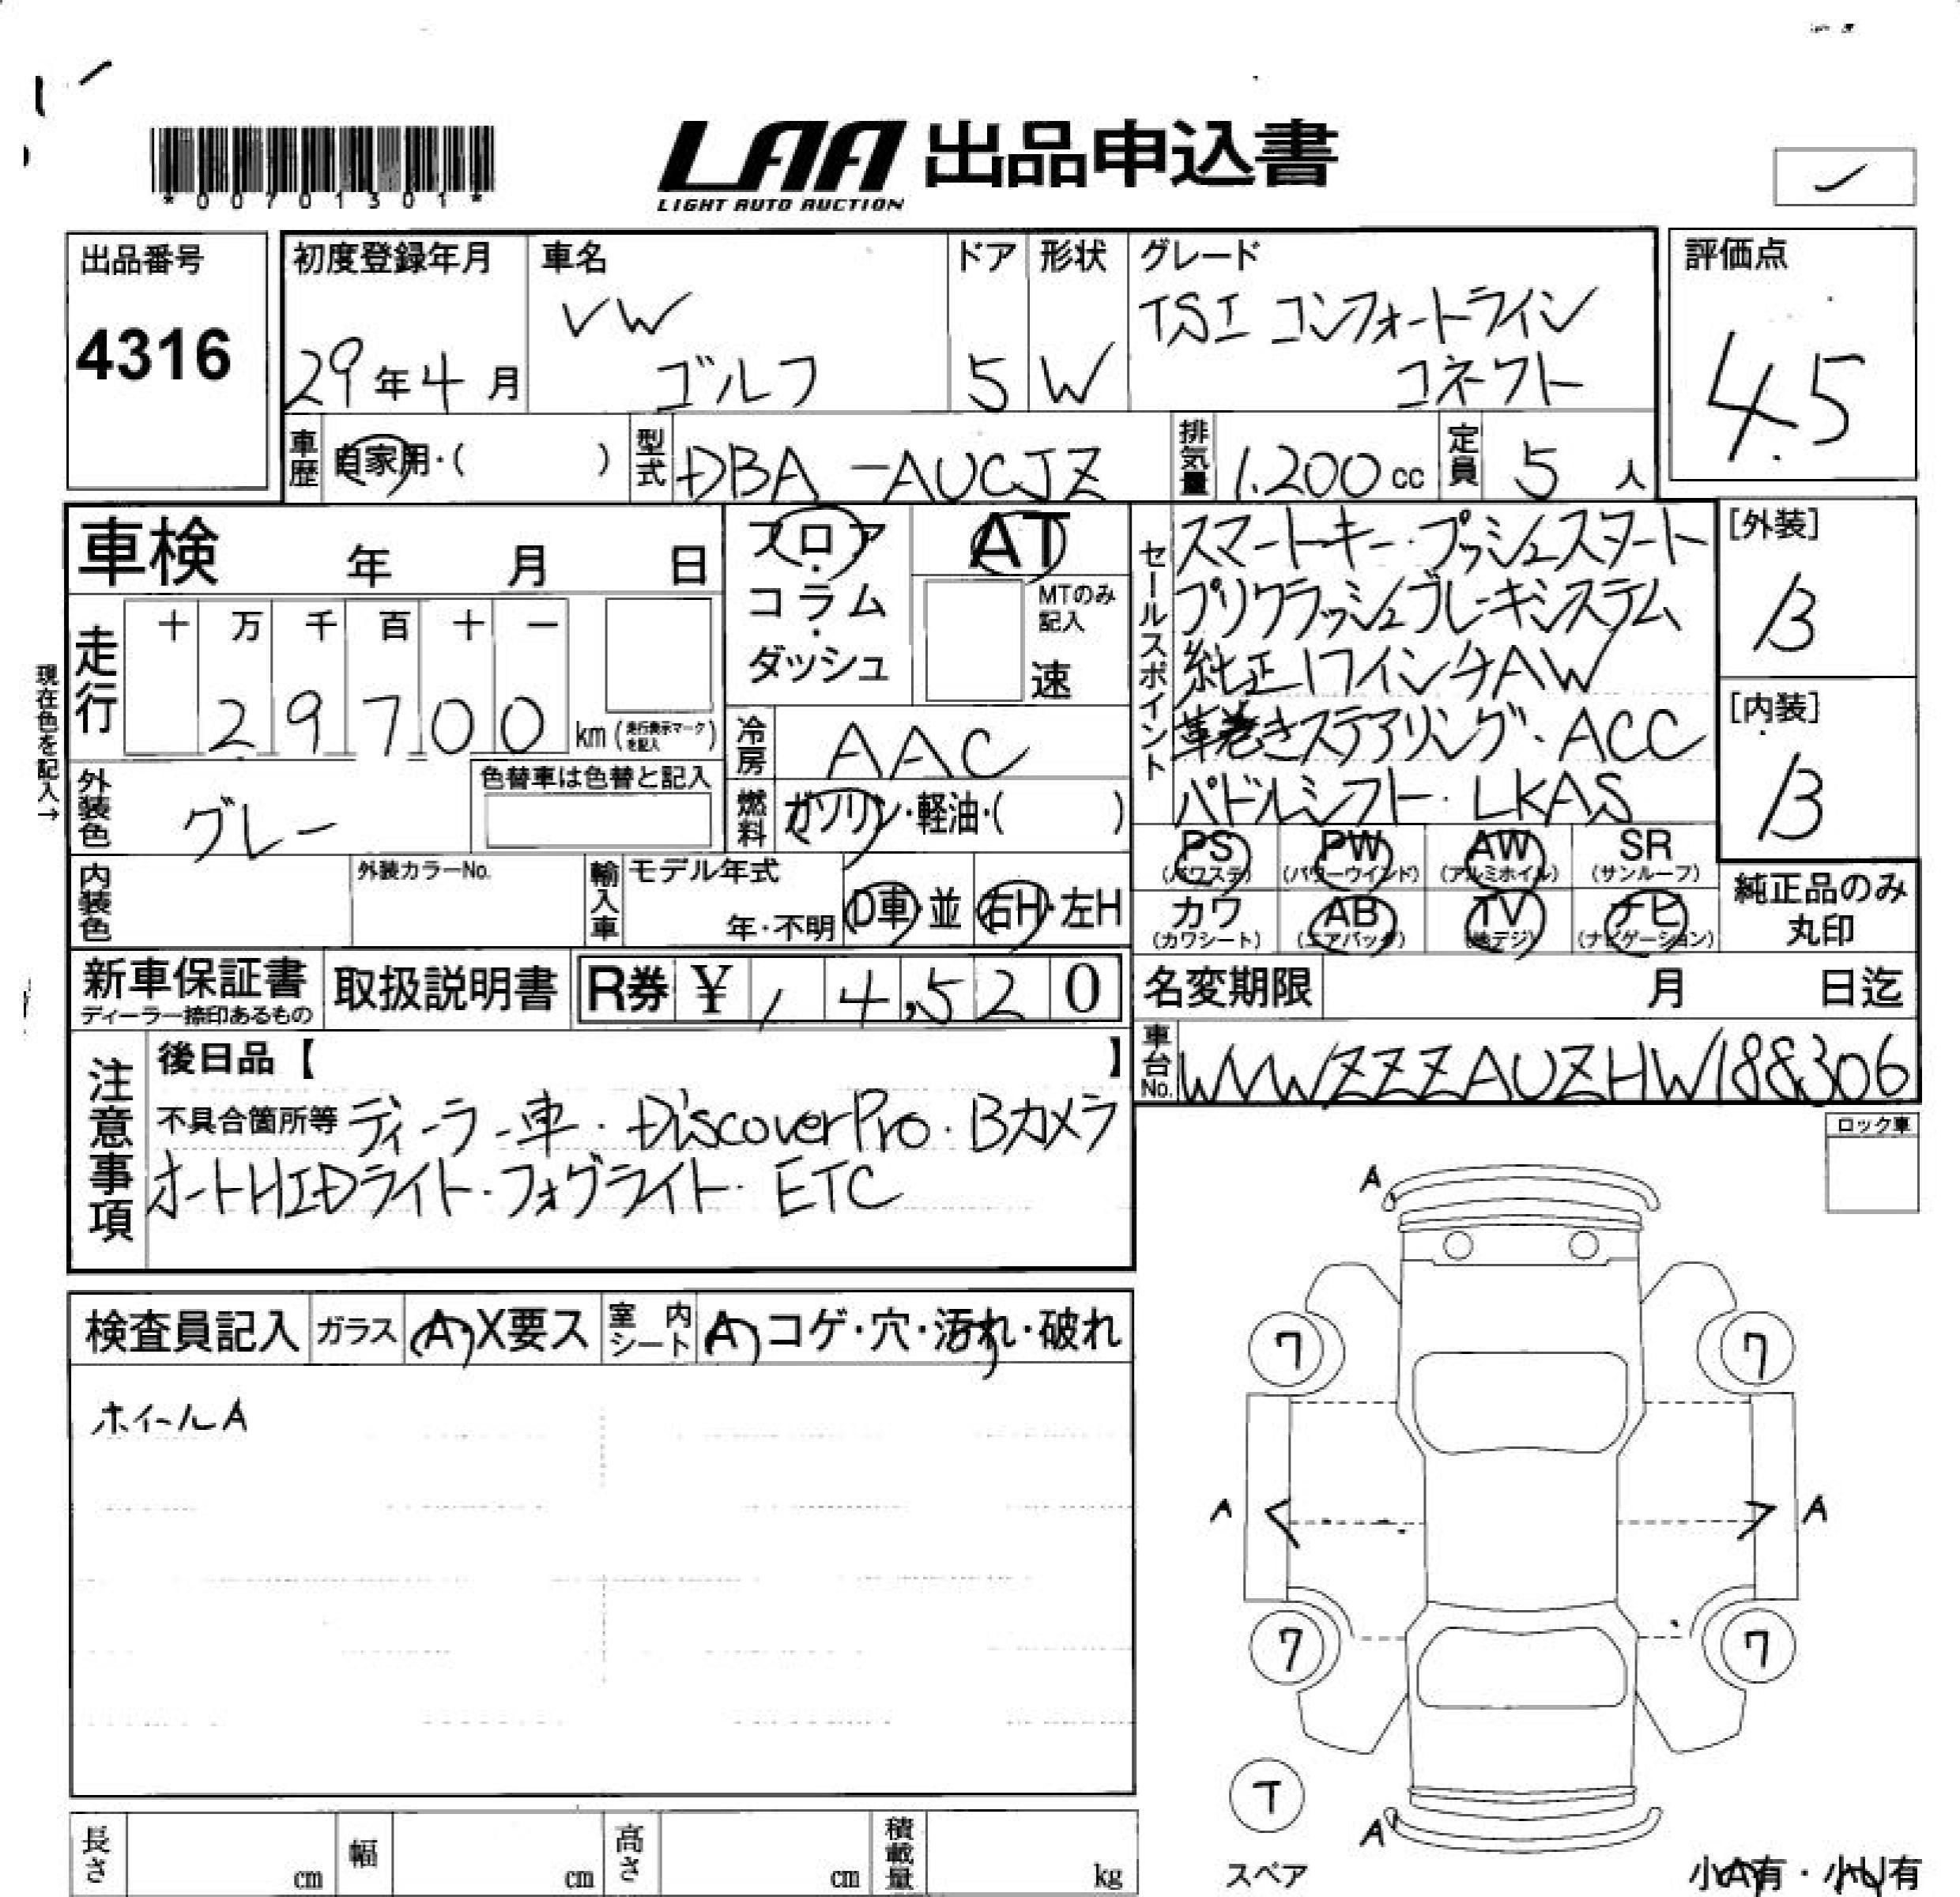 *00701301*
LAA 出品申込書
LIGHT AUTO AUCTION
出品番号
4316
初度登録年月
29年4月
車名
VW
ゴルフ
ドア
5
形状
W
グレード
TSI コンフォートライン
コネクト
評価点
4.5
車歴
自家用・( )
型式
DBA-AUCJZ
排気量
1.200cc
定員
5人
車検 年 月 日
フロア
・
コラム
・
ダッシュ
AT
MTのみ
記入
速
セールスポイント
スマートキー・プッシュスタート
プリクラッシュブレーキシステム
純正17インチAW
革巻きステアリング・ACC
パドルシフト・LKAS
[外装]
B
[内装]
B
現在色を記入→
走行
十 万 千 百 十 一
2 9 7 0 0 km(走行表示マークを記入)
冷房
AAC
外装色
グレー
色替車は色替と記入
燃料
ガソリン・軽油・( )
内装色
外装カラーNo.
輸入車
モデル年式
年・不明
D車・並
右H・左H
PS
(パワステ)
PW
(パワーウインド)
AW
(アルミホイル)
SR
(サンルーフ)
カワ
(カワシート)
AB
(エアバッグ)
TV
(地デジ)
ナビ
(ナビゲーション)
純正品のみ
丸印
新車保証書
ディーラー捺印あるもの
取扱説明書
R券 ¥ , 4,520
名変期限 月 日迄
車台No.
WVWZZZAUZHW188306
注意事項
後日品【 】
不具合箇所等 ディーラー車・DiscoverPro・Bカメラ
オートHIDライト・フォグライト・ETC
ロック車
検査員記入
ガラス
A・X要ス
室内シート
A・コゲ・穴・汚れ・破れ
ホイールA
A
7
7
A
A
7
7
T
スペア
A
小A有・小U有
長さ
cm
幅
cm
高さ
cm
積載量
kg